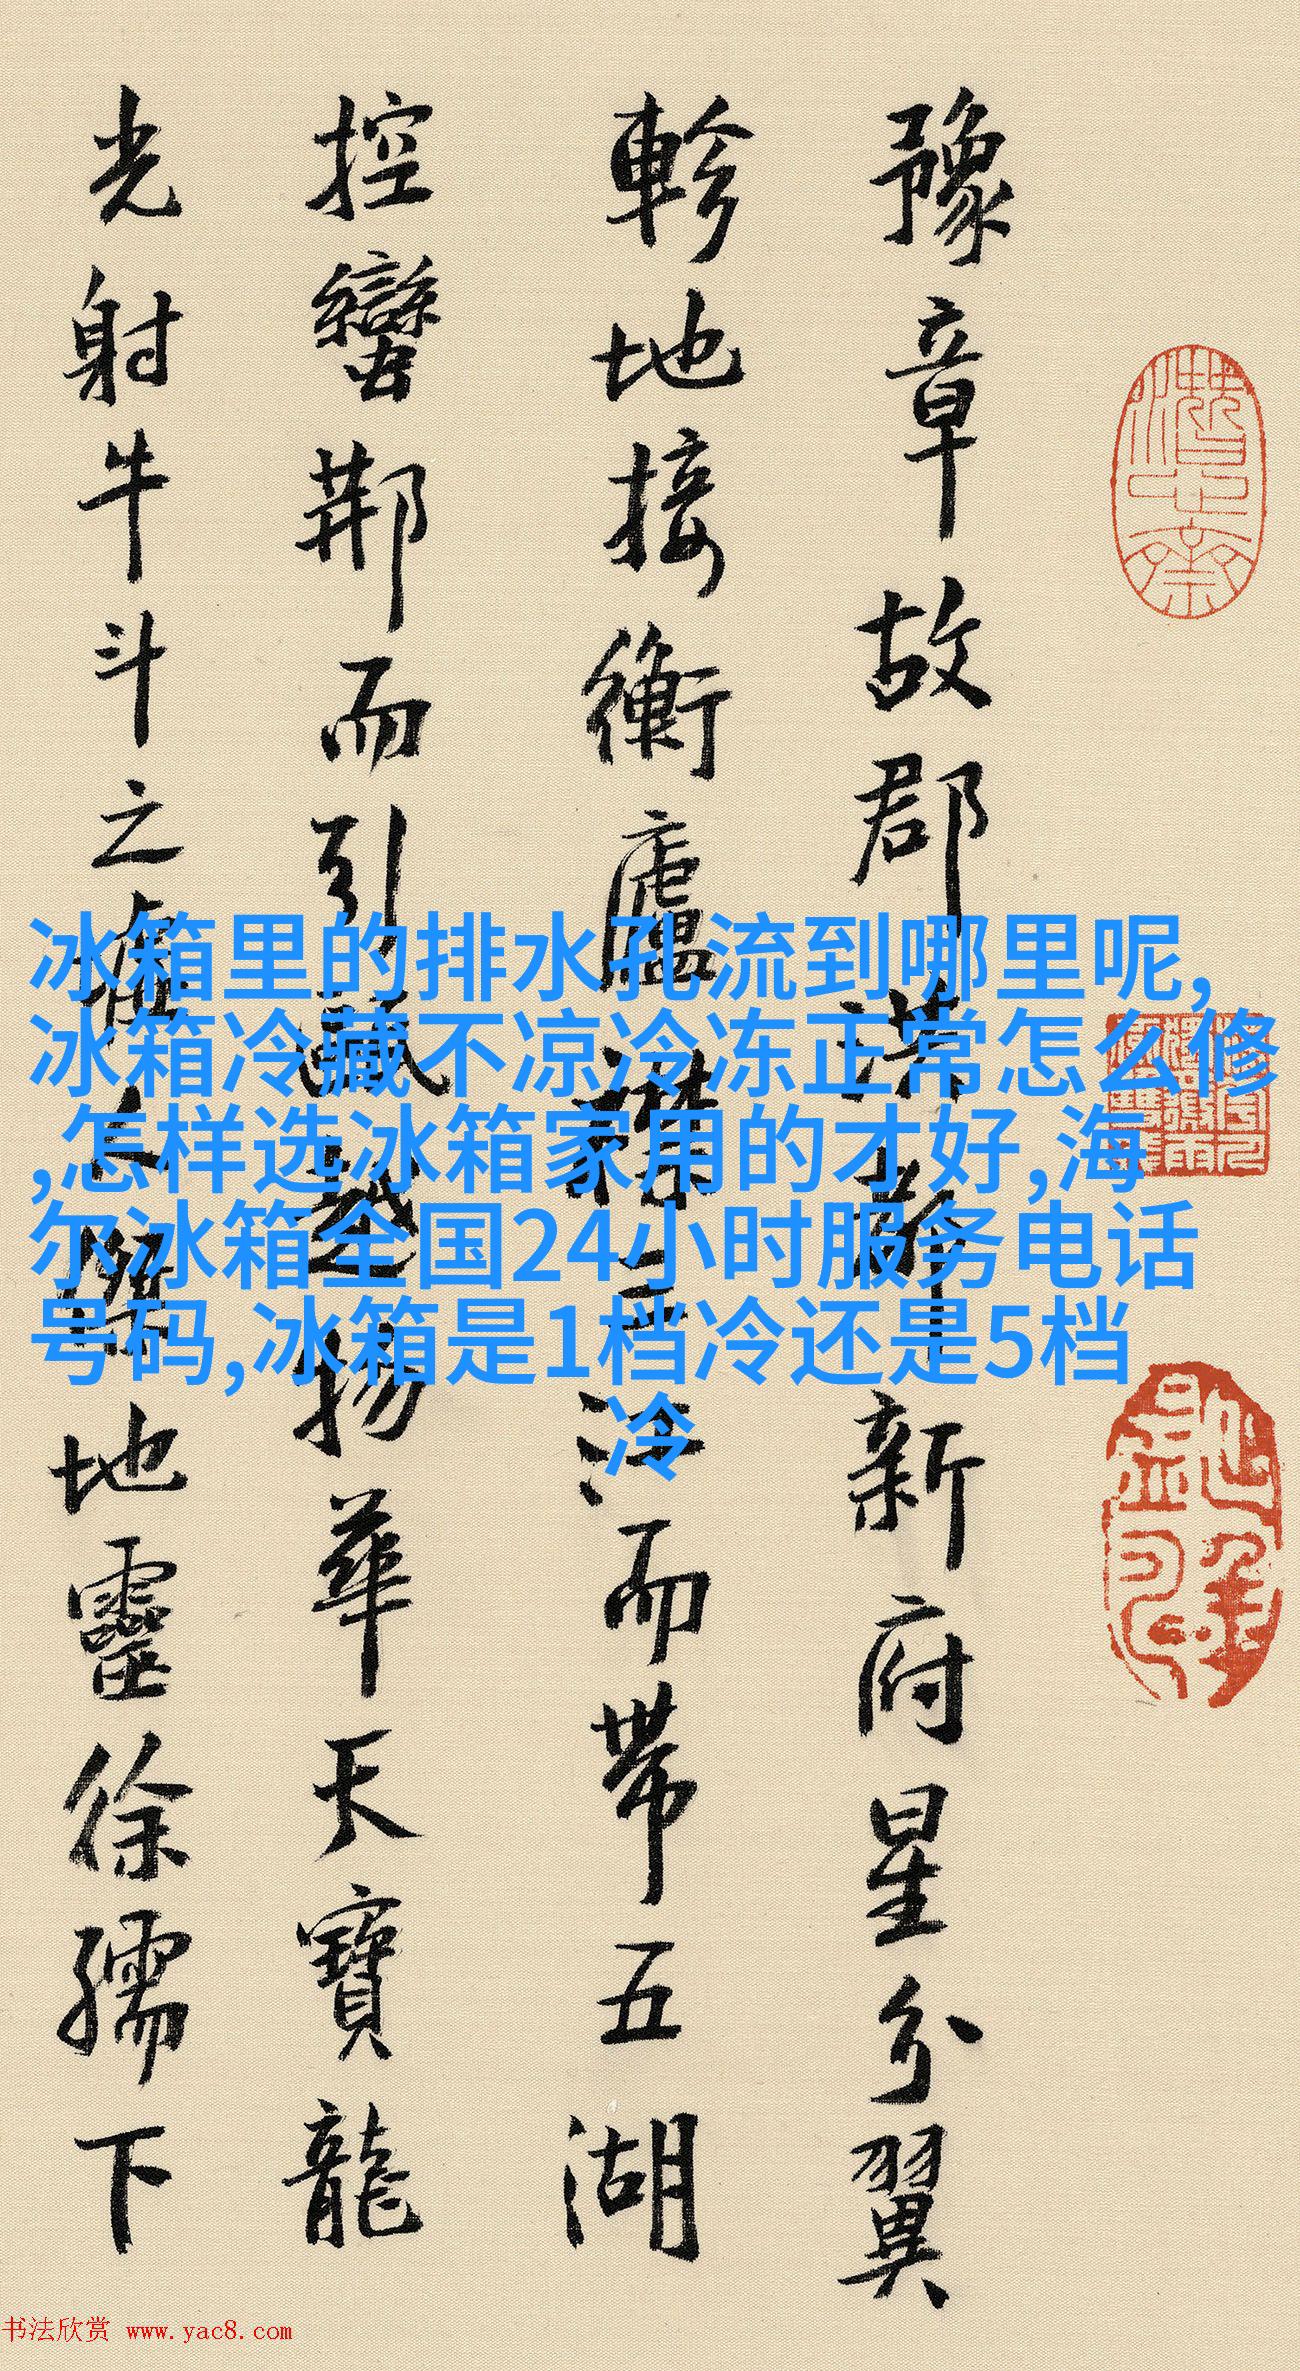 豫章故郡洪都新府星分翼
軫地接衡廬襟三江而帶五湖
控蠻荊而引甌越物華天寶龍
光射牛斗之墟人傑地靈徐孺下
冰箱里的排水孔流到哪里呢,
冰箱冷藏不凉冷冻正常怎么修
,怎样选冰箱家用的才好,海
尔冰箱全国24小时服务电话
号码,冰箱是1档冷还是5档
冷
书法欣赏 www.yac8.com